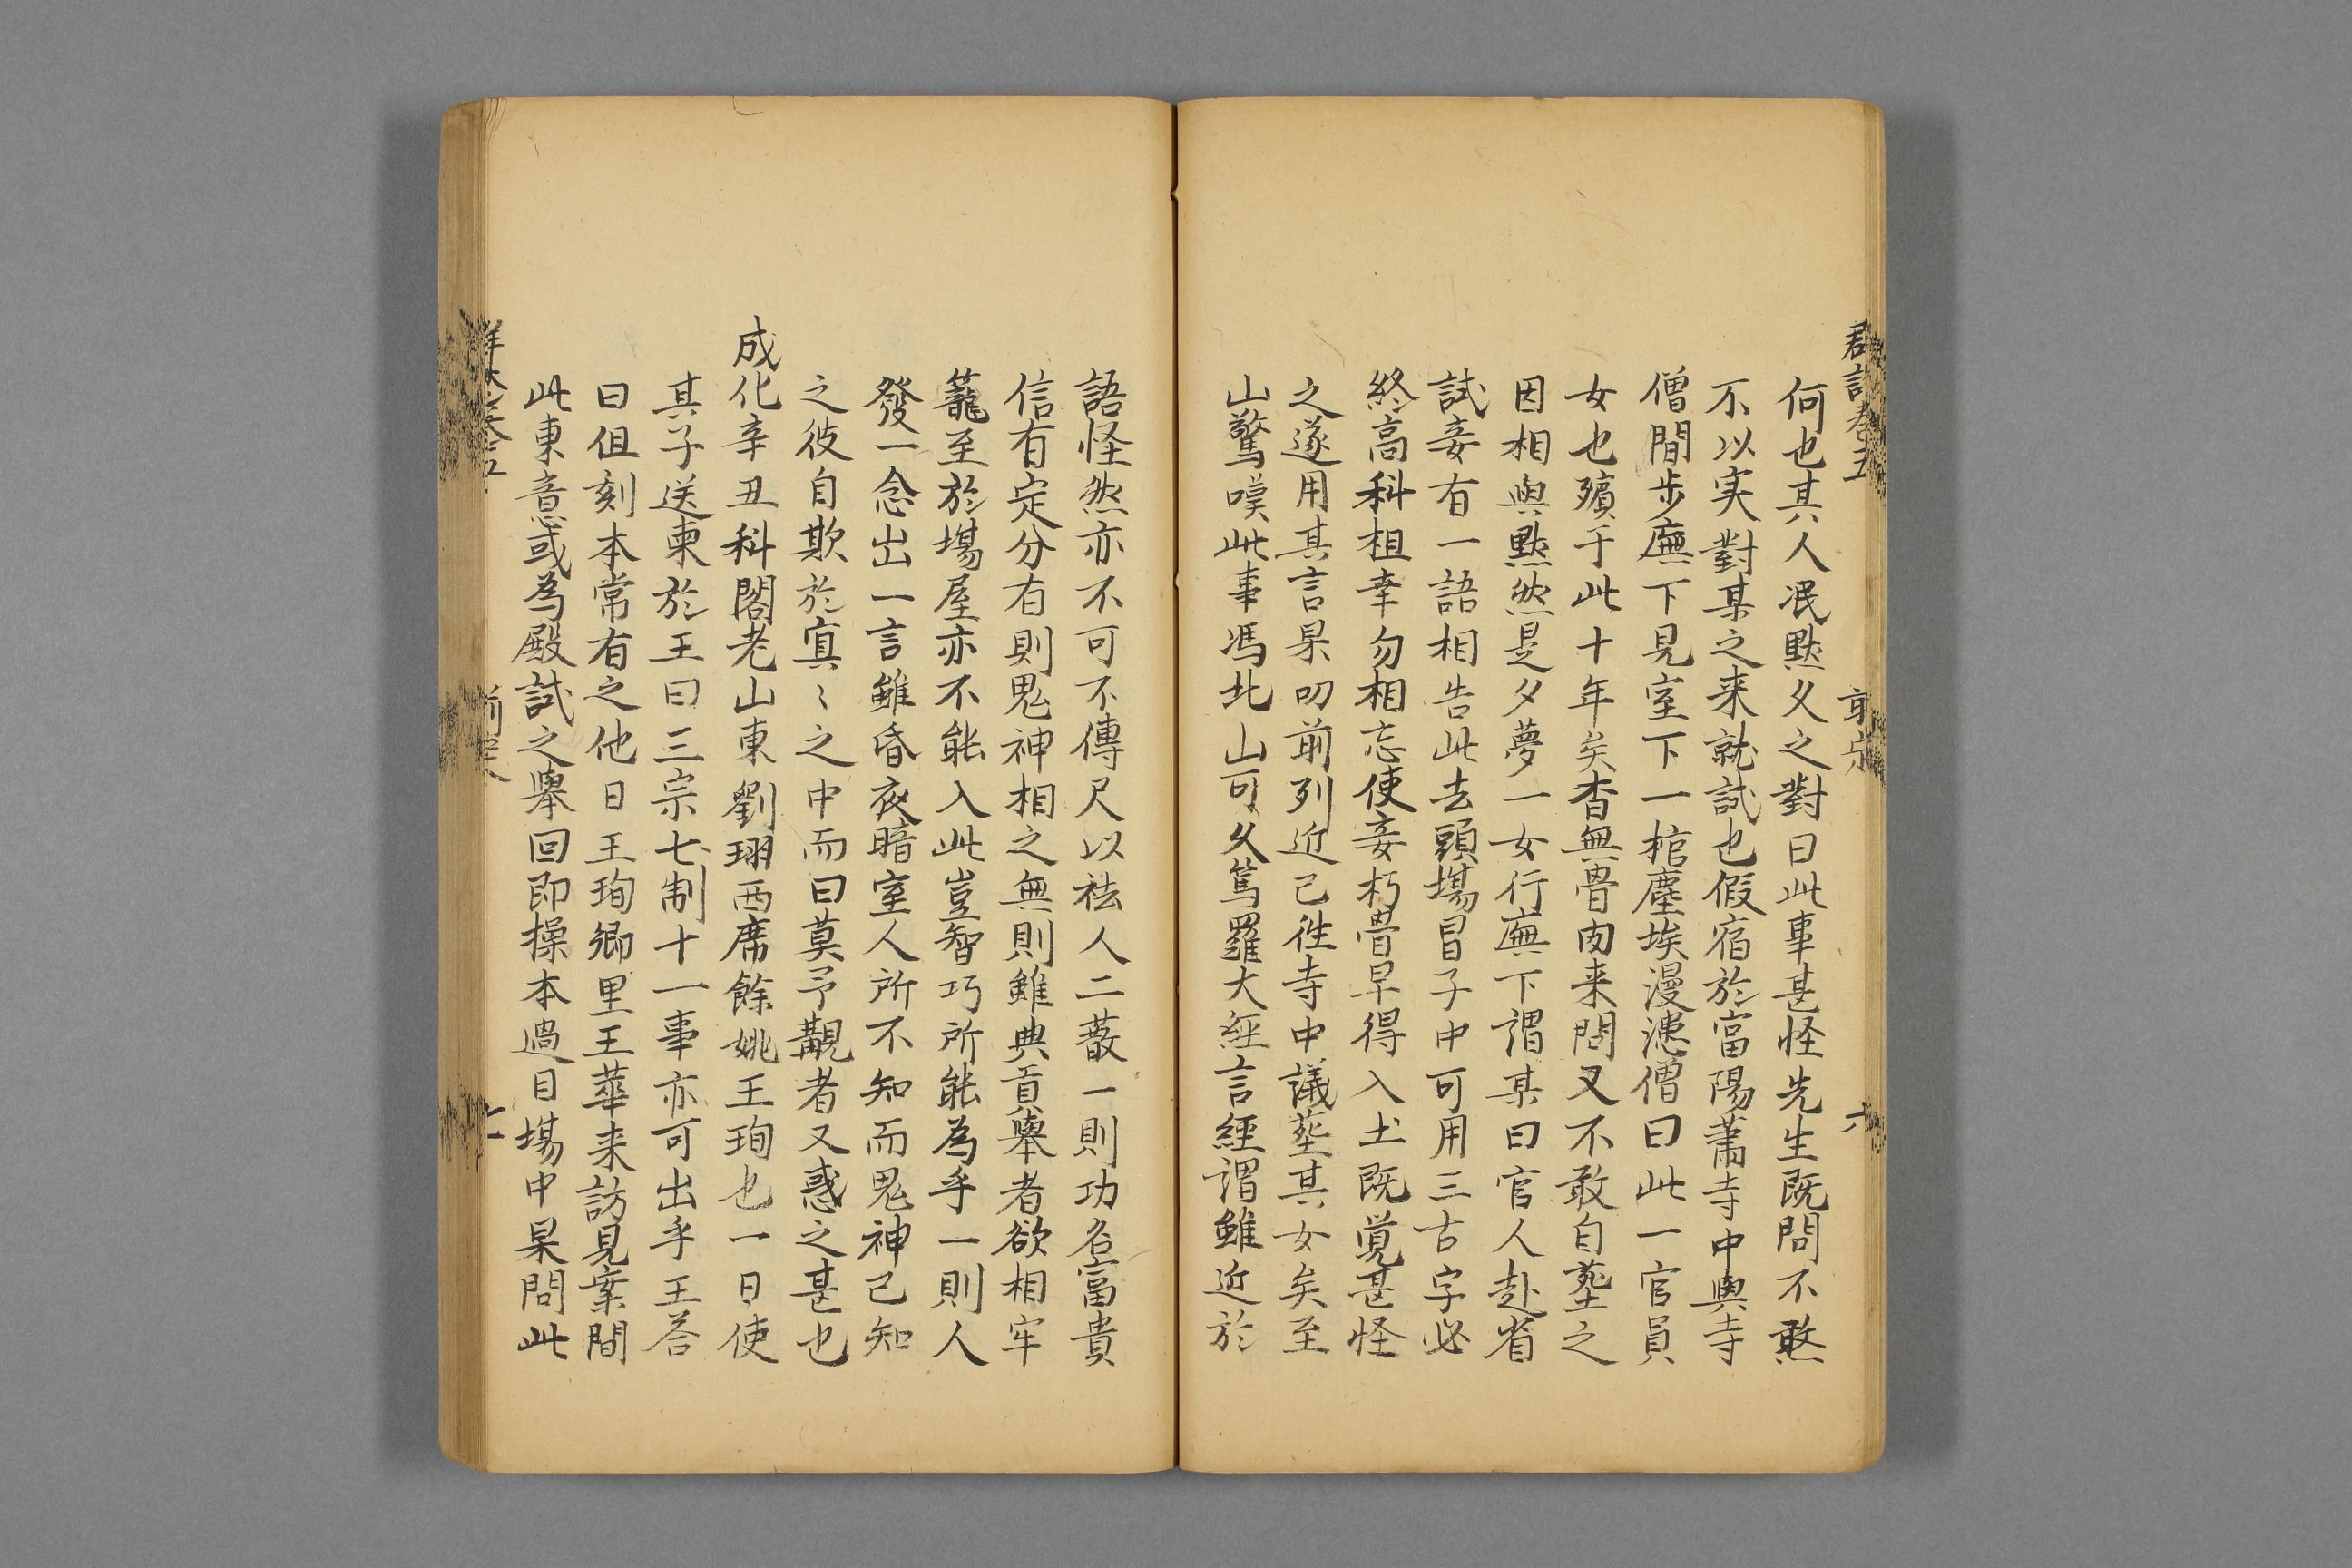 何也其人泯黙久之對曰此事甚怪先生既問不敢
不以実對某之来就試也假宿於富陽蕭寺中與寺
僧間步廡下見室下一棺塵埃漫漶僧曰此一官員
女也殯于此十年矣杳無骨肉来問又不敢自塟之
因相與黙然是夕夢一女行廡下謂某曰官人赴省
試妾有一語相告此去頭塲冒子中可用三古字必
終高科柤幸勿相忘使妾朽骨早得入土既覚甚怪
之遂用其言果叨前列近已徃寺中議塟其女矣至
山驚嘆此事馮北山可久篤羅大經言經謂雖近於
語怪然亦不可不傳尺以袪人二蔽一則功名富貴
信有定分有則鬼神相之無則雖典貢舉者欲相牢
籠至於塲屋亦不能入此豈智巧所能為乎一則人
發一念出一言雖昏夜暗室人所不知而鬼神已知
之彼自欺於寘〻之中而曰莫予覯者又惑之甚也
成化辛丑科閣老山東劉珝西席餘姚王珣也一日使
其子送柬於王曰三宗七制十一事亦可出乎王荅
曰但刻本常有之他日王珣鄉里王華来訪見案間
此東意或為殿試之舉回即操本過目塲中果問此